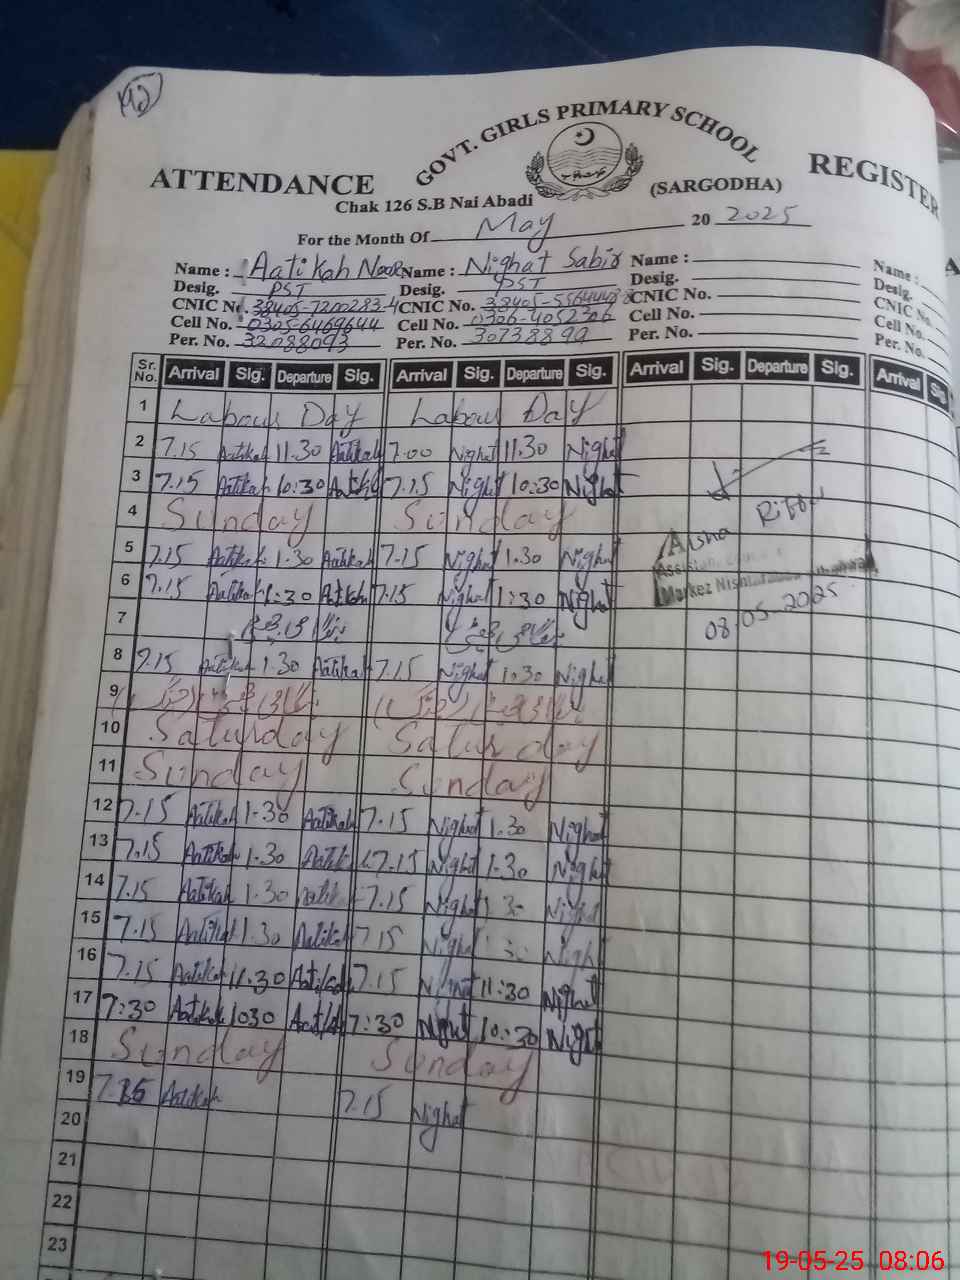 92
GOVT. GIRLS PRIMARY SCHOOL
ATTENDANCE (SARGODHA) REGISTER
Chak 126 S.B Nai Abadi
For the Month Of May 20 2025
Name : Aatikah Noor Name : Nighat Sabir Name : Name :
Desig. PST Desig. PST Desig. Desig.
CNIC No. 38405-7200283-4 CNIC No. CNIC No. CNIC No.
Cell No. 0305-6469644 Cell No. 0306-4052306 Cell No. Cell No.
Per. No. 32088093 Per. No. 30738899 Per. No. Per. No.
Sr. No. Arrival Sig. Departure Sig. Arrival Sig. Departure Sig. Arrival Sig. Departure Sig. Arrival Sig.
1 Labour Day Labour Day
2 7.15 Aatikah 11.30 Aatikah 7.00 Nighat 11.30 Nighat
3 7.15 Aatikah 10:30 Aatikah 7.15 Nighat 10:30 Nighat
4 Sunday Sunday
5 7.15 Aatikah 1.30 Aatikah 7.15 Nighat 1.30 Nighat
6 7.15 Aatikah 1:30 Aatikah 7.15 Nighat 1:30 Nighat
7
8 7.15 Aatikah 1.30 Aatikah 7.15 Nighat 1.30 Nighat
9
10 Saturday Saturday
11 Sunday Sunday
12 7.15 Aatikah 1.30 Aatikah 7.15 Nighat 1.30 Nighat
13 7.15 Aatikah 1.30 Aatikah 7.15 Nighat 1.30 Nighat
14 7.15 Aatikah 1.30 Aatikah 7.15 Nighat 1.30 Nighat
15 7.15 Aatikah 1.30 Aatikah 7.15 Nighat 1.30 Nighat
16 7.15 Aatikah 11:30 Aatikah 7.15 Nighat 11:30 Nighat
17 7:30 Aatikah 1030 Aatikah 7:30 Nighat 10:30 Nighat
18 Sunday Sunday
19 7.15 Aatikah 7.15 Nighat
20
21
22
23
Aisha
Markez
08.05.2025
19-05-25 08:06